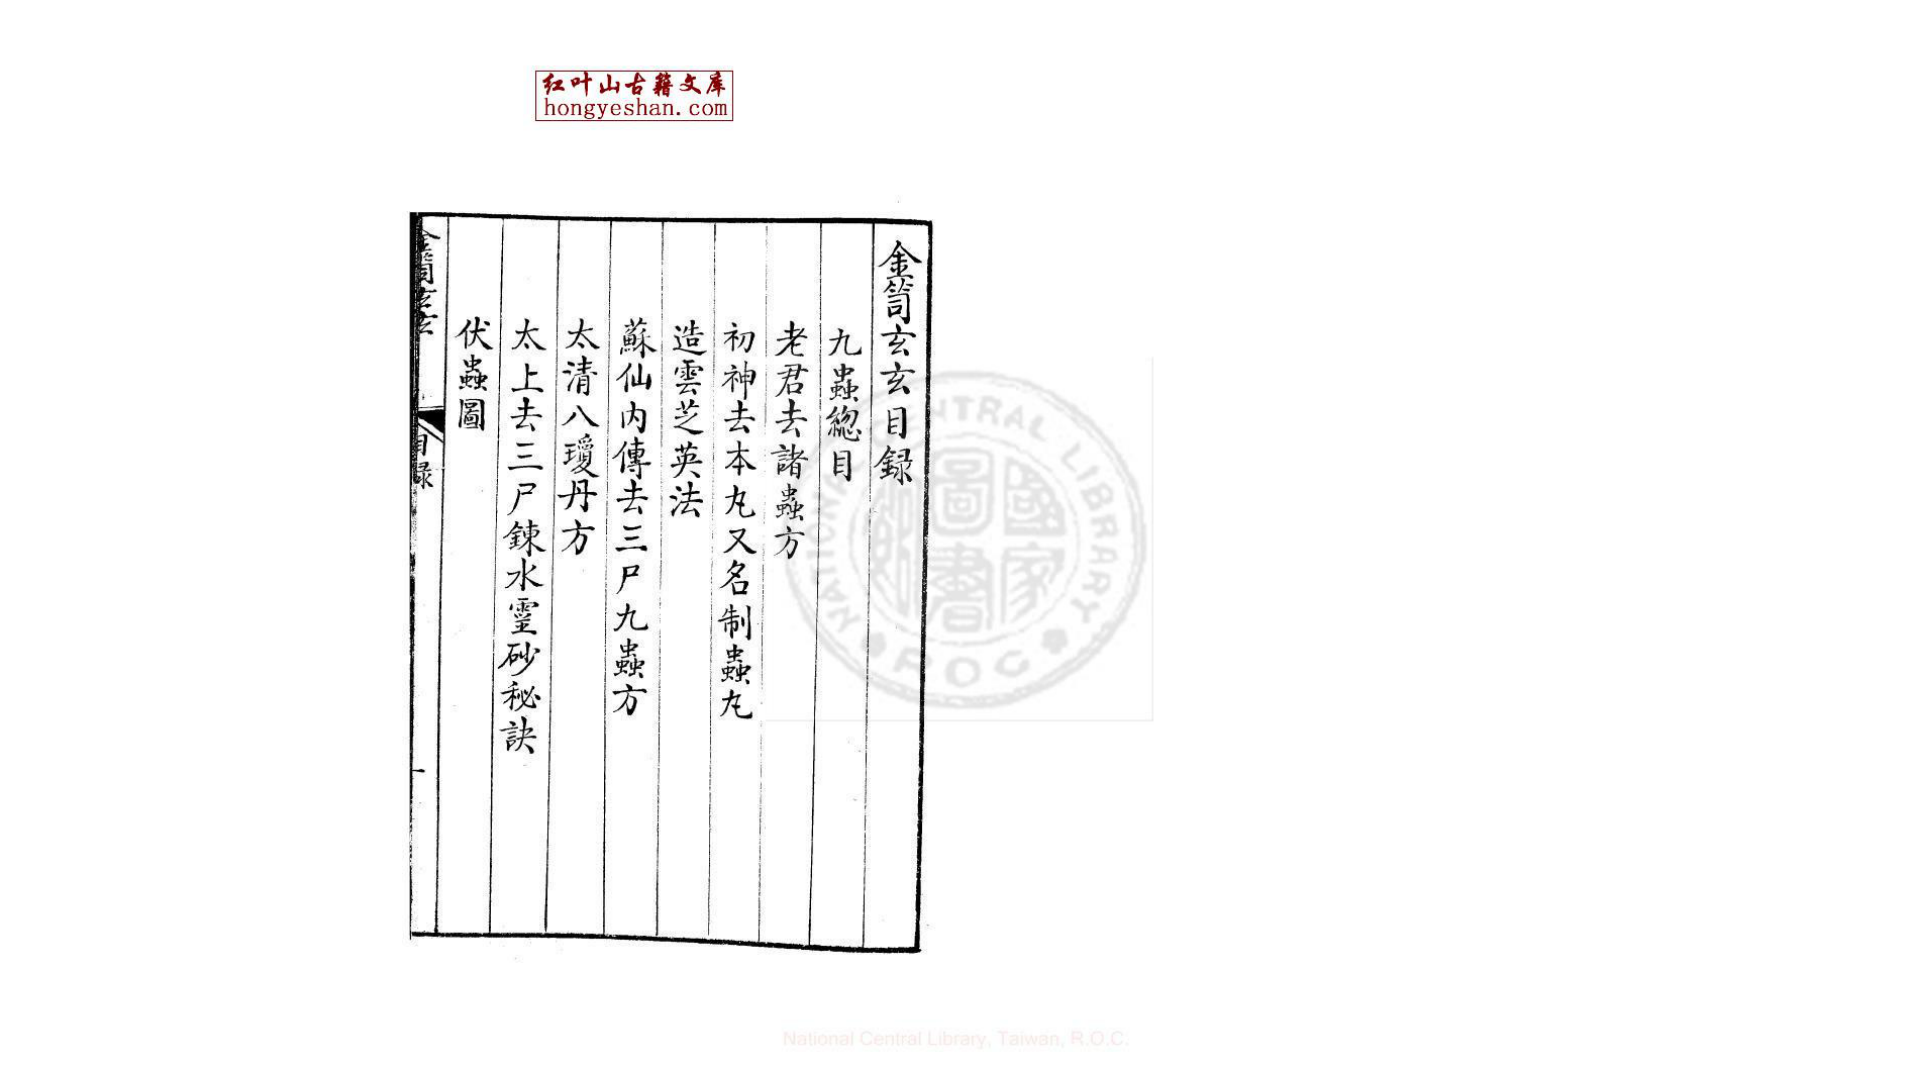 红叶山古籍文库
hongyeshan.com
金笥玄玄目録
九蟲總目
老君去諸蟲方
初神去本丸又名制蟲丸
造雲芝英法
蘇仙内傳去三尸九蟲方
太清八瓊丹方
太上去三尸錬水靈砂秘訣
伏蟲圖
金笥玄玄
目録
一
NATIONAL CENTRAL LIBRARY
ROC
國家圖書
National Central Library, Taiwan, R.O.C.